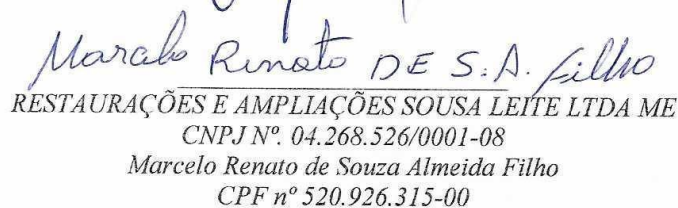 Marcelo Renato DE S. A. Filho
RESTAURAÇÕES E AMPLIAÇÕES SOUSA LEITE LTDA ME
CNPJ Nº. 04.268.526/0001-08
Marcelo Renato de Souza Almeida Filho
CPF nº 520.926.315-00